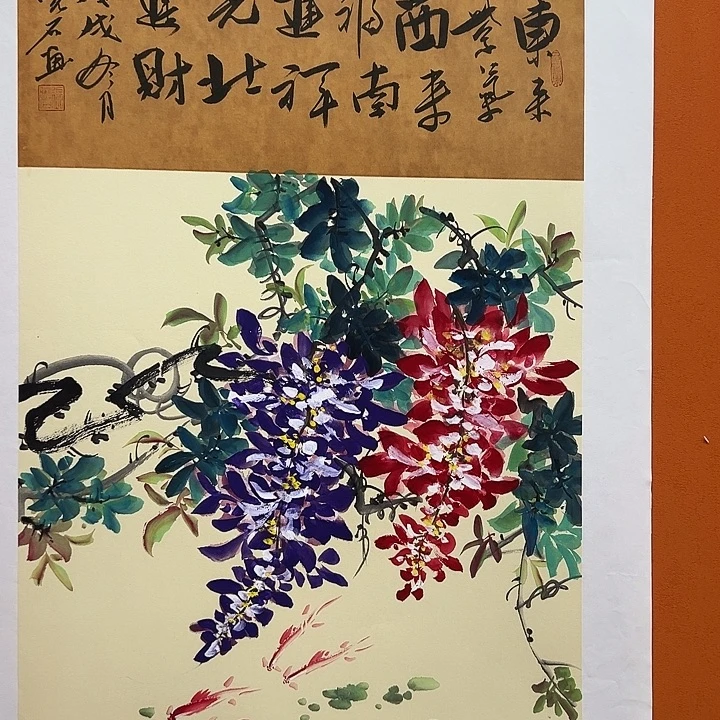 東来
紫氣
西来
福南
進祥
光北
進財
戌冬月
石画